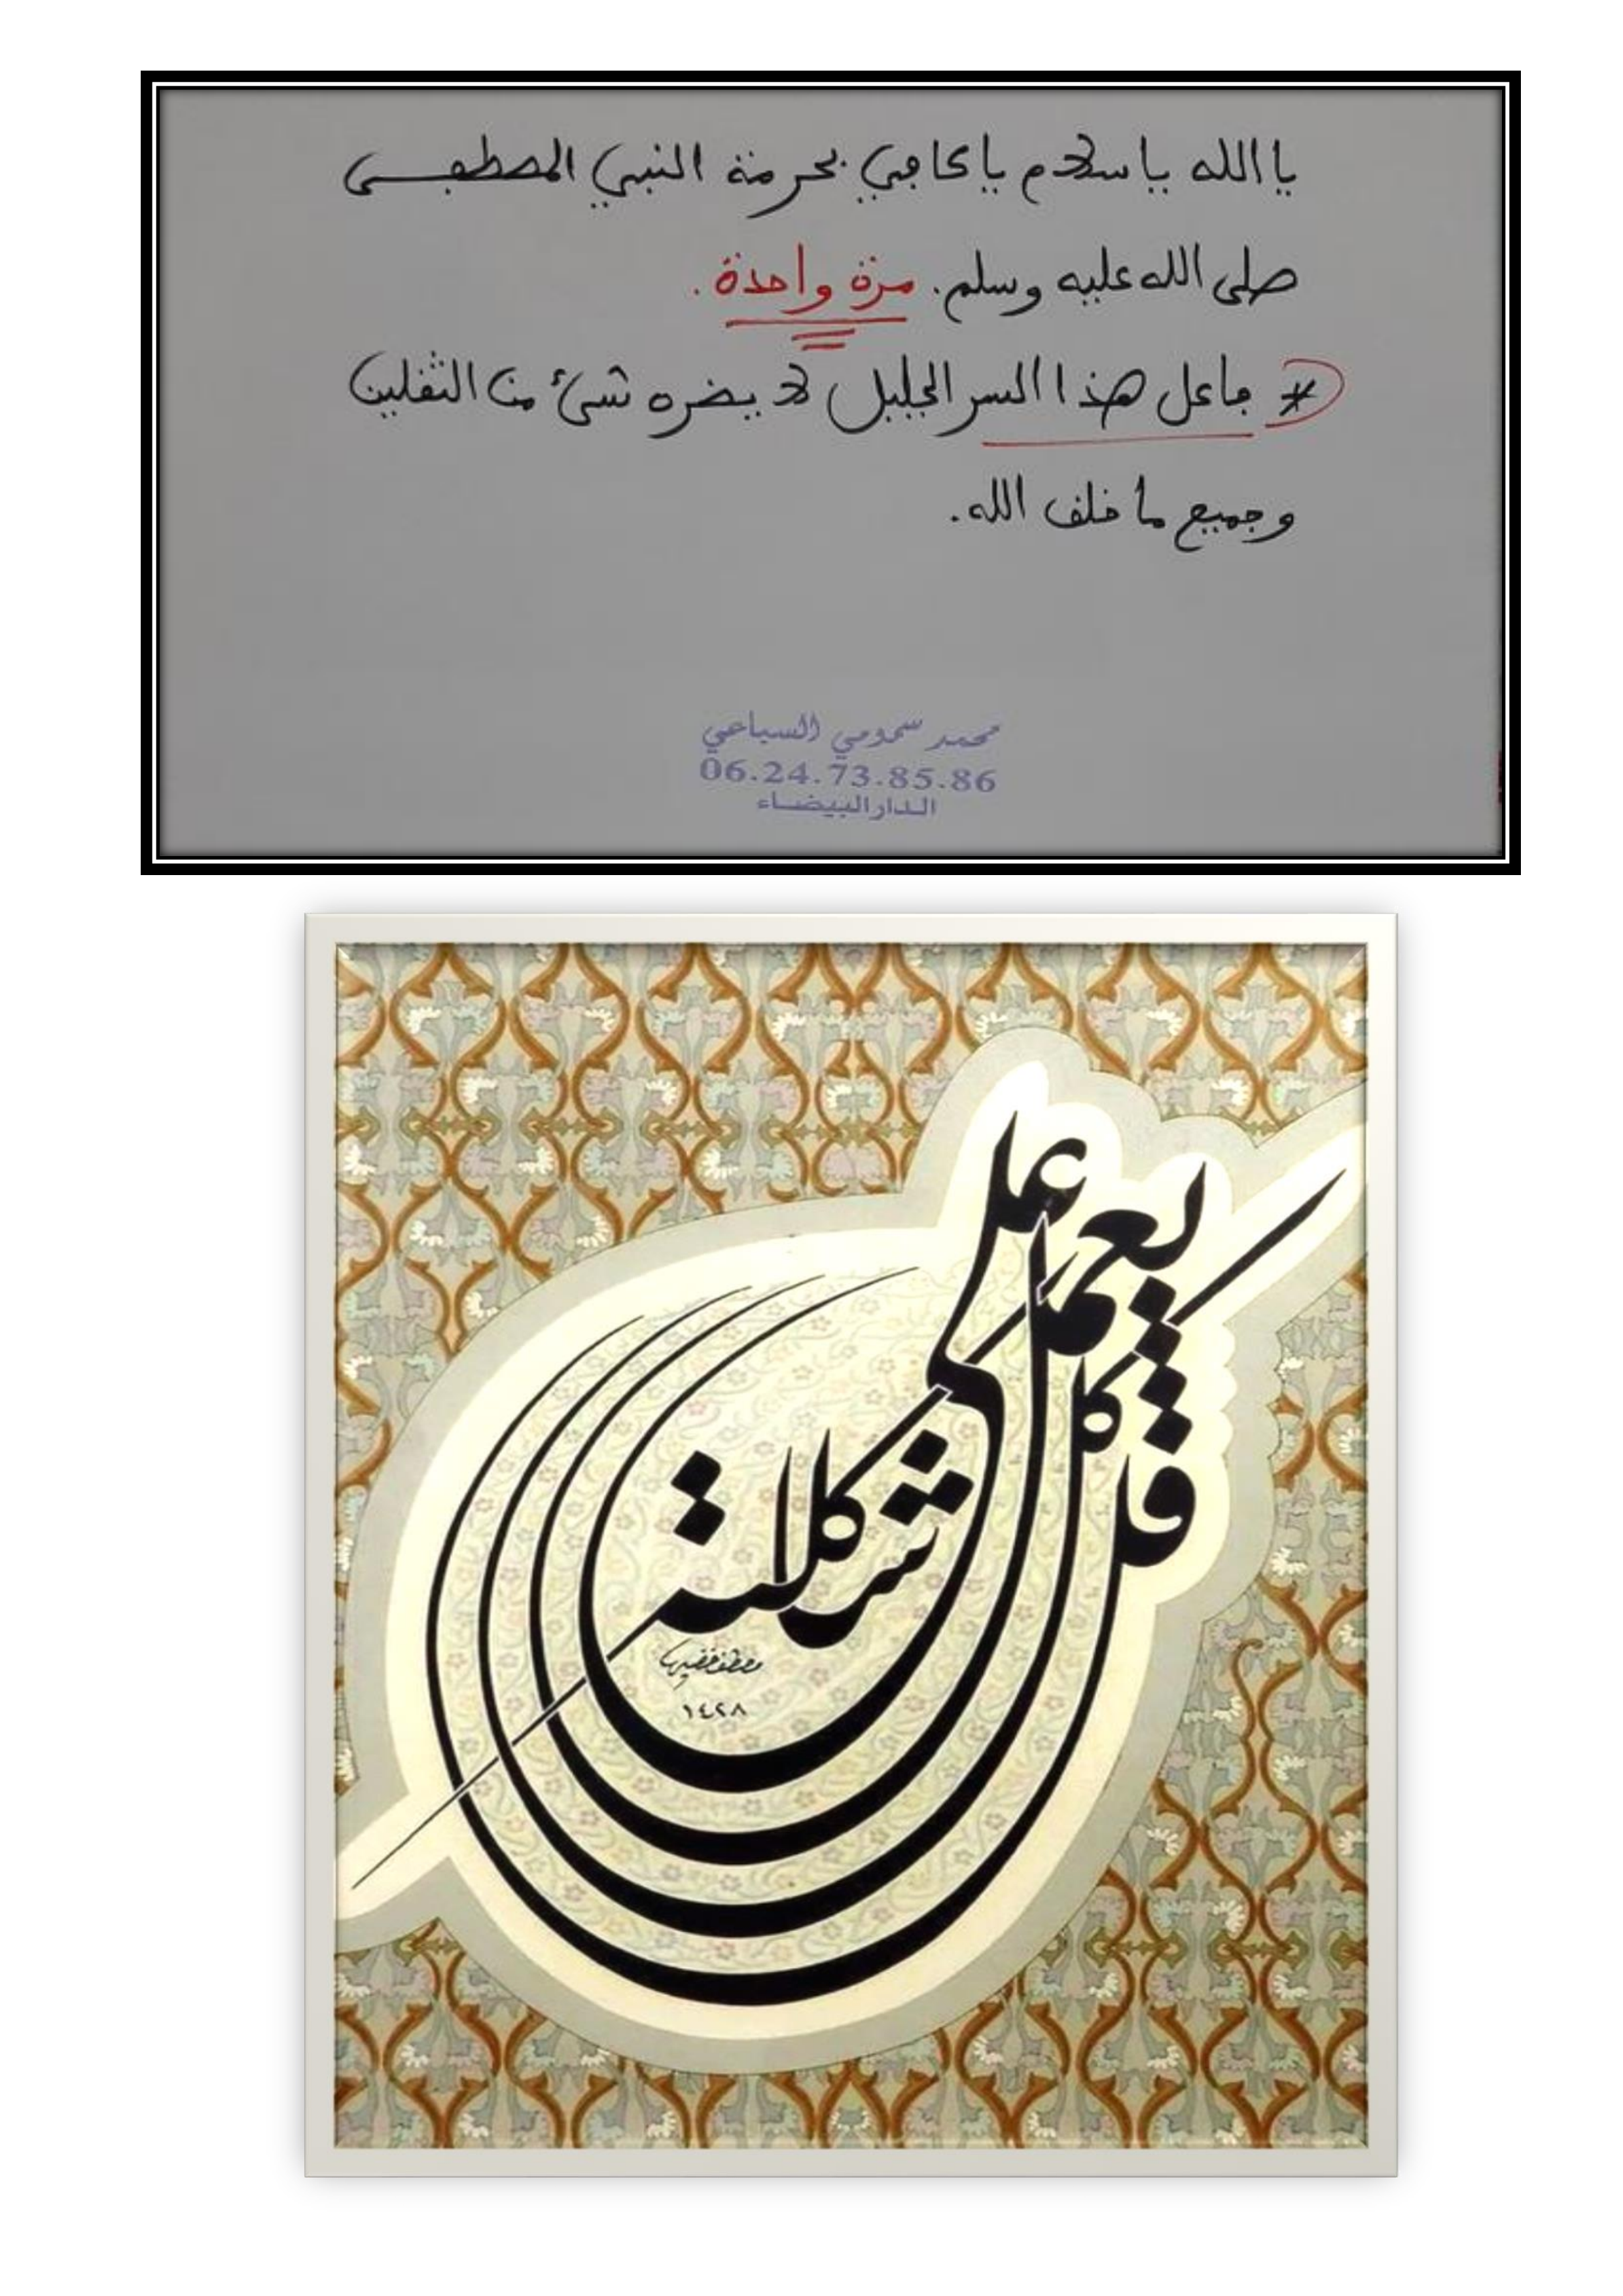 يا الله يا سلام يا كافي بحرمة النبي المصطفى
صلى الله عليه وسلم. مرة واحدة.
* فاعل هذا السر الجليل لا يضره شيء من الثقلين
وجميع ما خلق الله.
محمد سمومي السباعي
06.24.73.85.86
الدار البيضاء
قل كل يعمل على شاكلته
١٤٢٨